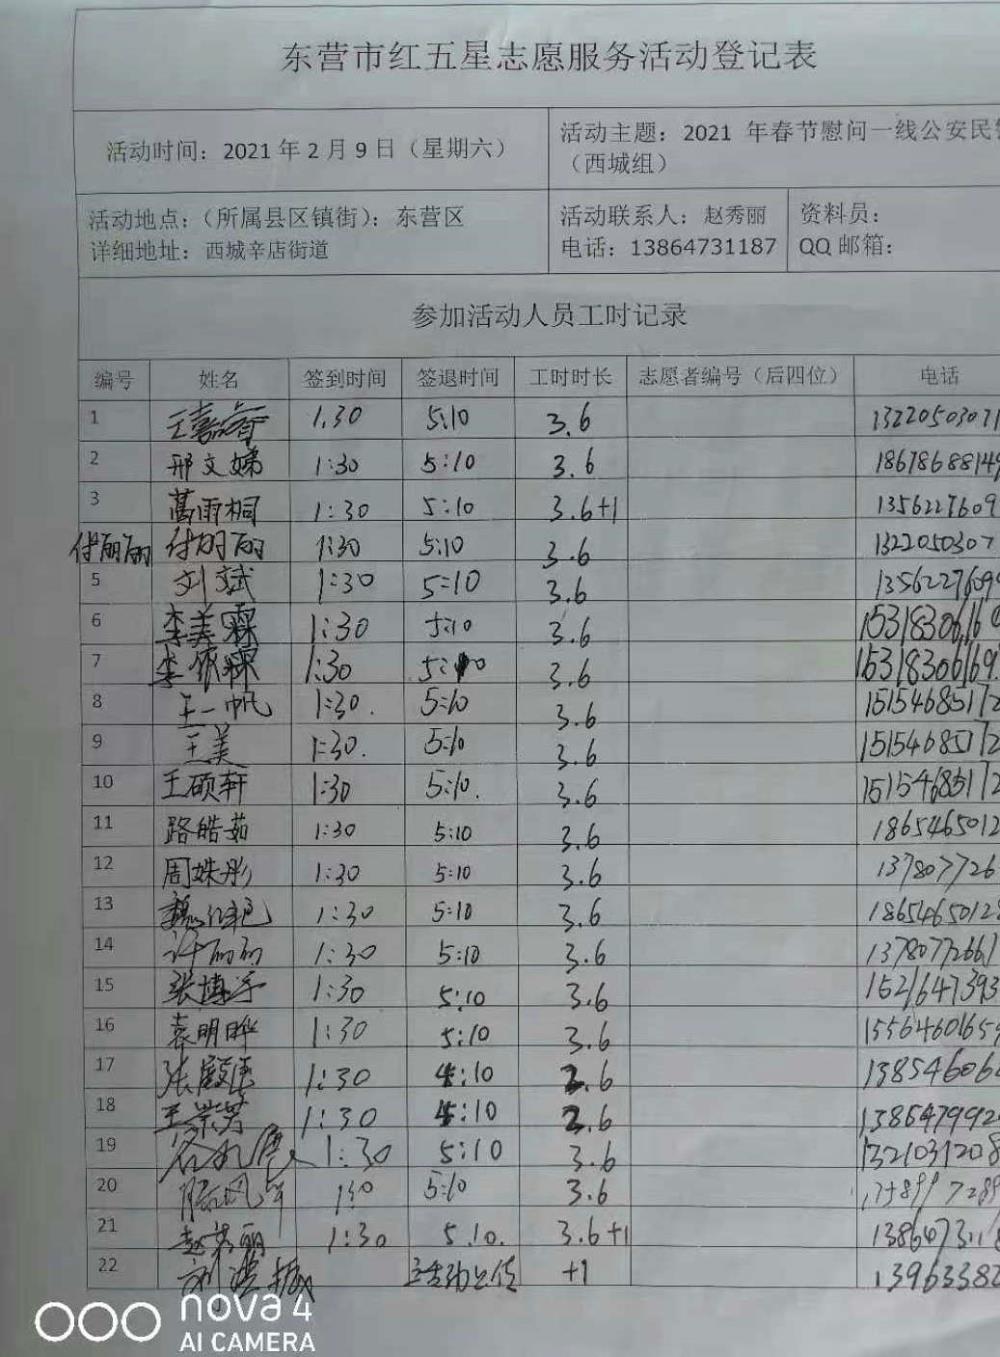 东营市红五星志愿服务活动登记表
活动时间：2021 年 2 月 9 日（星期六）
活动主题：2021 年春节慰问一线公安民
（西城组）
活动地点：（所属县区镇街）：东营区
详细地址：西城辛店街道
活动联系人：赵秀丽
电话：13864731187
资料员：
QQ 邮箱：
参加活动人员工时记录
编号 姓名 签到时间 签退时间 工时时长 志愿者编号（后四位） 电话
1 王嘉睿 1:30 5:10 3.6 1322050307
2 邢文娣 1:30 5:10 3.6 1867868814
3 葛雨桐 1:30 5:10 3.6+1 1356227609
付丽丽 付丽丽 1:30 5:10 3.6 132205030
5 刘斌 1:30 5:10 3.6 1356227609
6 李美霖 1:30 5:10 3.6 1531830616
7 李依霖 1:30 5:10 3.6 15318306169
8 王一帆 1:30. 5:10 3.6 1515468517
9 王美 1:30. 5:10 3.6 1515468517
10 王硕轩 1:30 5:10. 3.6 1515468517
11 路皓茹 1:30 5:10 3.6 1865465012
12 周姝彤 1:30 5:10 3.6 137807726
13 1:30 5:10 3.6 1865465012
14 许丽丽 1:30 5:10 3.6 1378077266
15 张博宇 1:30 5:10 3.6 1521647393
16 袁明晔 1:30 5:10 3.6 1556460165
17 1:30 4:10 2.6 13854606
18 1:30 4:10 2.6 138647992
19 1:30 5:10 3.6 1321031208
20 1:30 5:10 3.6
21 赵秀丽 1:30 5:10. 3.6+1 138647311
22 +1 13963382
nova 4
AI CAMERA